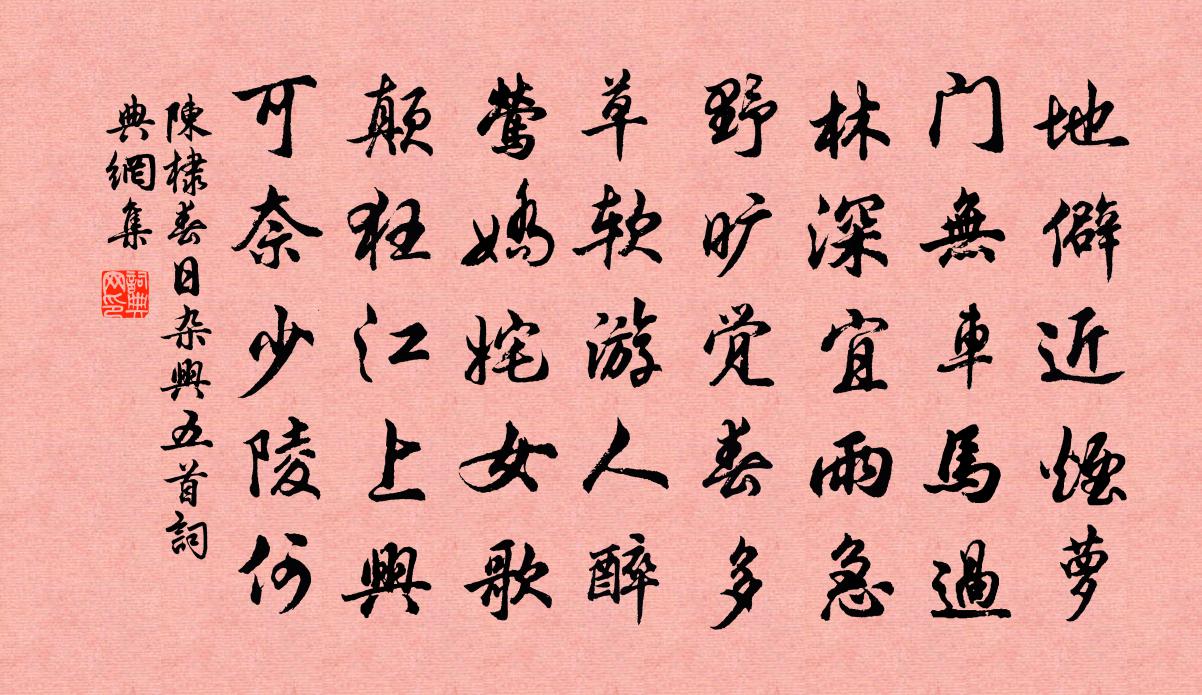 地僻近煙萝
门無車馬過
林深宜雨急
野旷觉春多
草软游人醉
鶯嬌姹女歌
顛狂江上興
可奈少陵何
陳棣春日杂興五首詞
典網集
詞典
网印